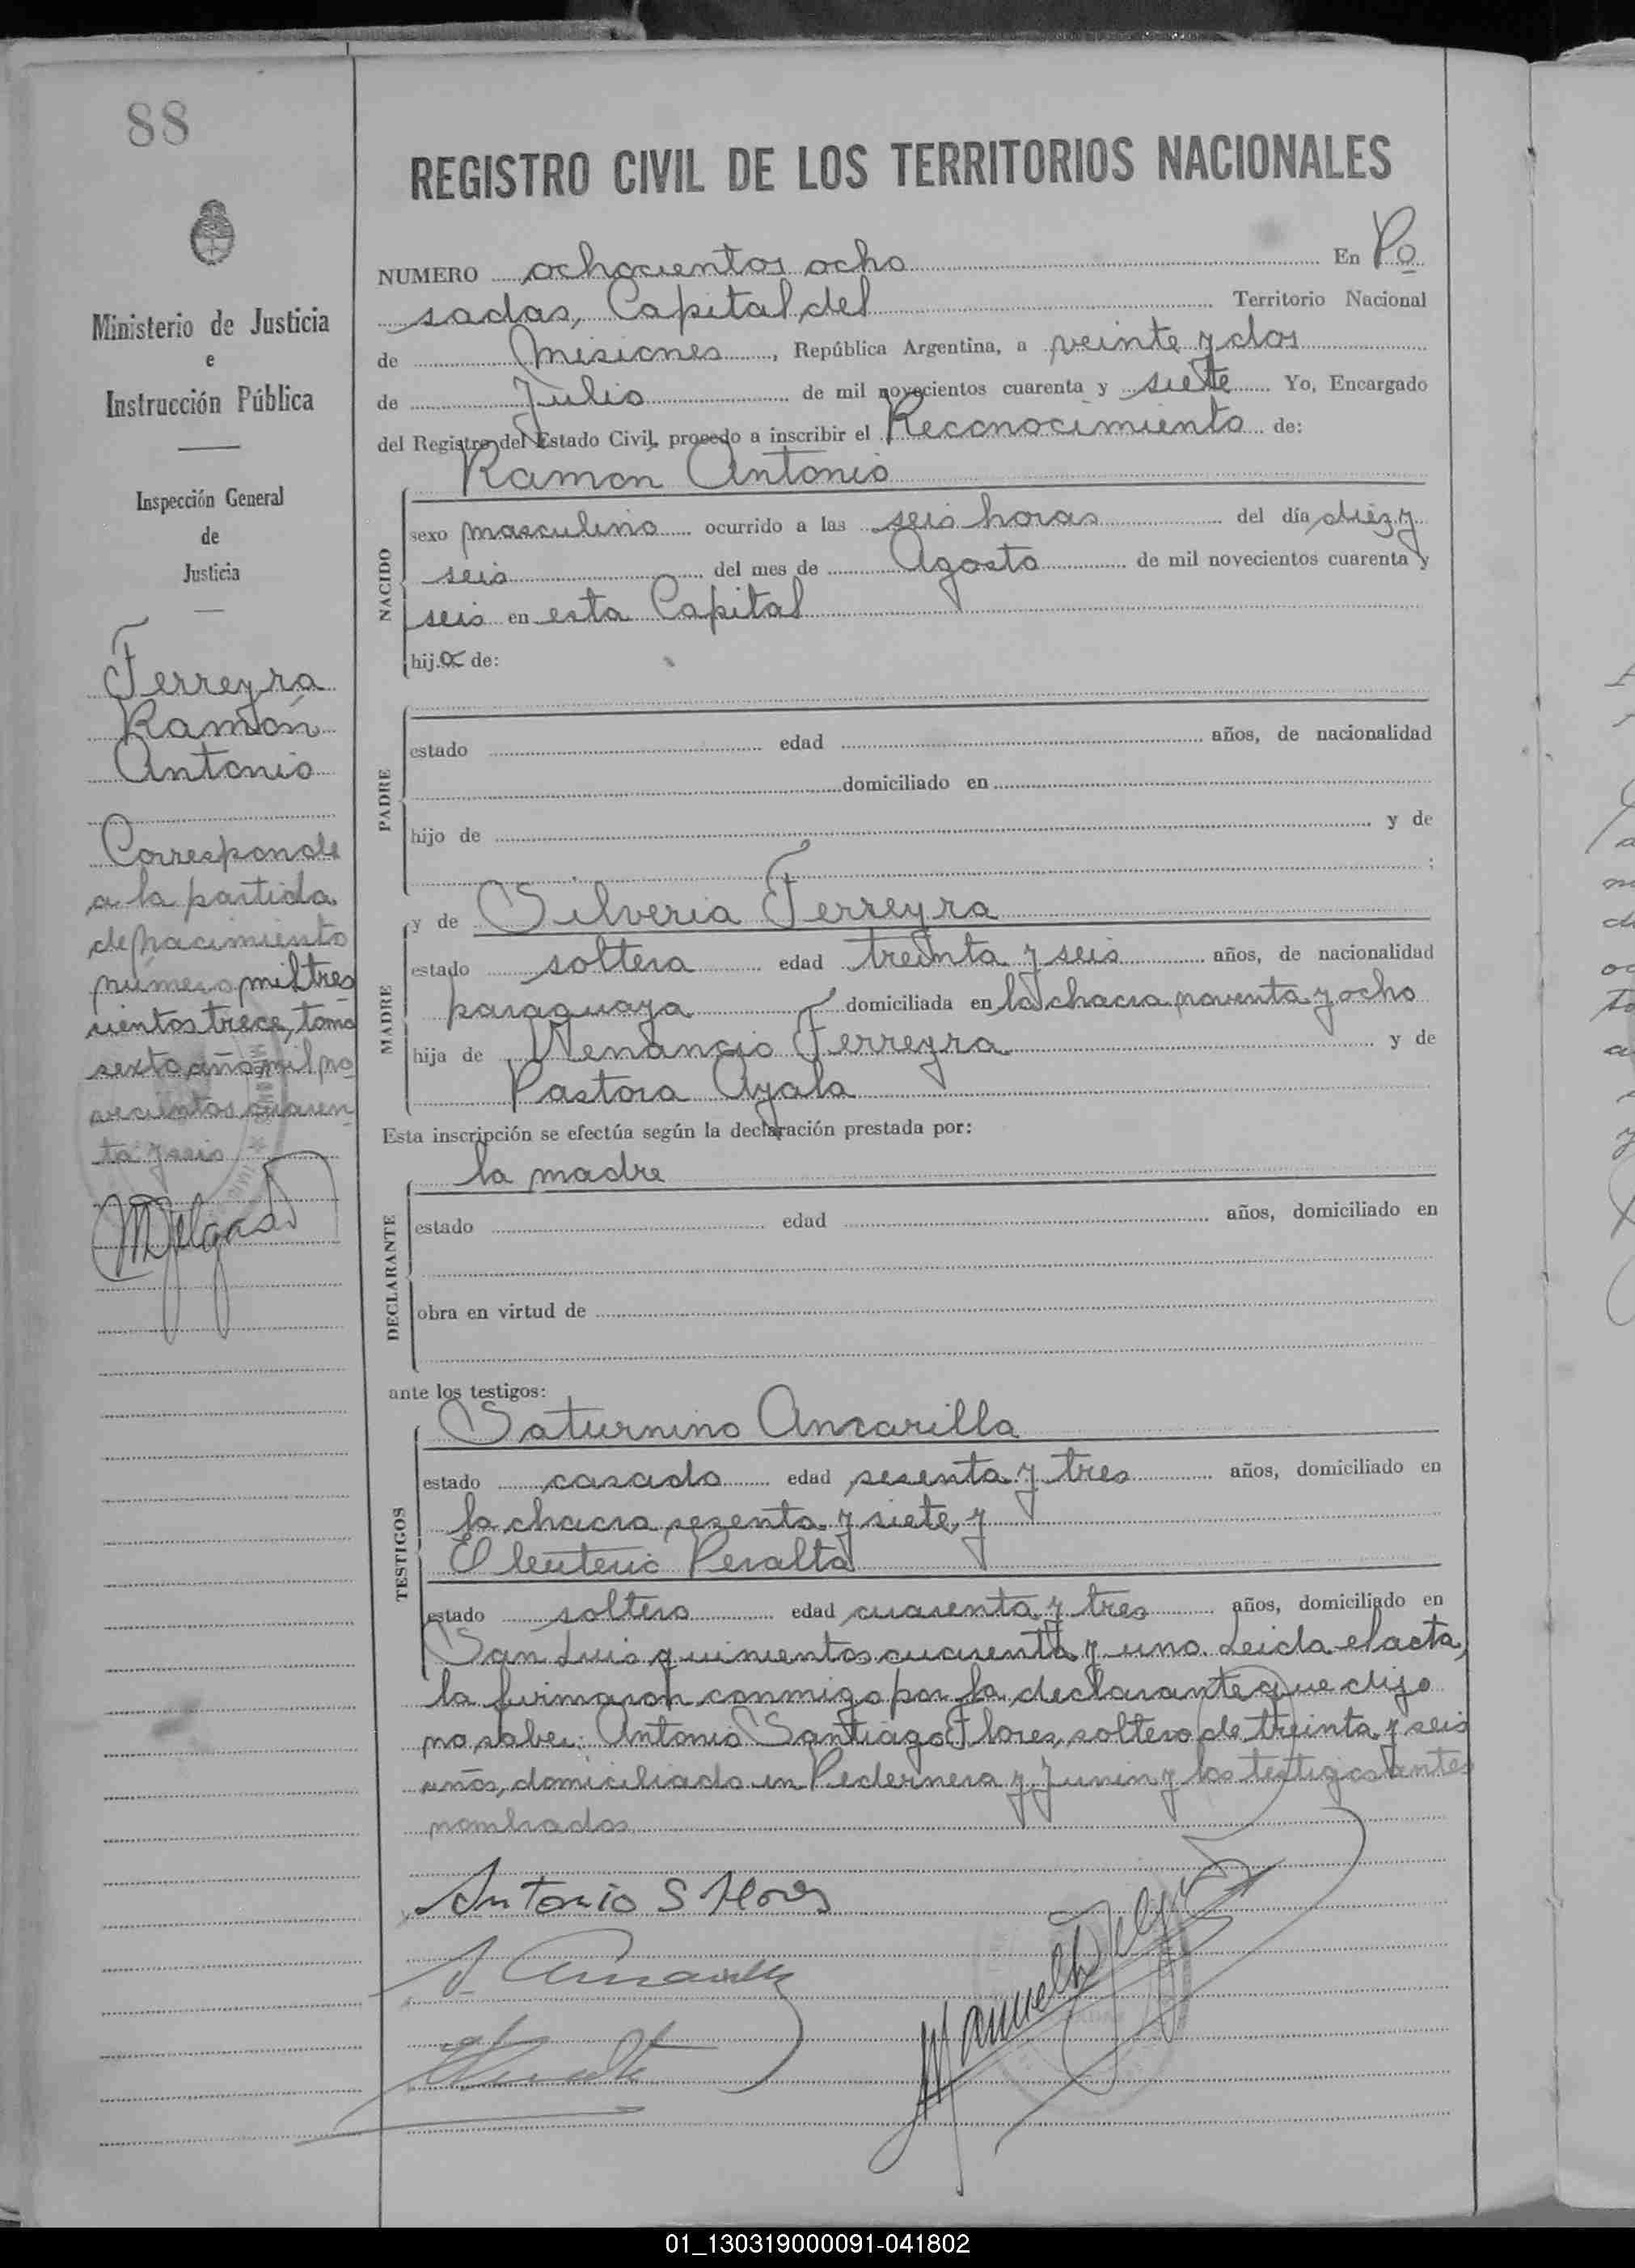 88
Ministerio de Justicia
e
Instrucción Pública
Inspección General
de
Justicia
Ferreyra
Ramón
Antonio
Corresponde
a la partida
de nacimiento
número mil tres
cientos trece, tomo
sexto año mil no
vecientos cuaren
ta y seis
REGISTRO CIVIL DE LOS TERRITORIOS NACIONALES
NUMERO ochocientos ocho En Po
sadas, Capital del Territorio Nacional
de Misiones, República Argentina, a veinte y dos
de Julio de mil novecientos cuarenta y siete Yo, Encargado
del Registro del Estado Civil, procedo a inscribir el Reconocimiento de:
NACIDO
Ramon Antonio
sexo masculino ocurrido a las seis horas del día diez y
seis del mes de Agosto de mil novecientos cuarenta y
seis en esta Capital
hijo de:
PADRE
estado edad años, de nacionalidad
domiciliado en
hijo de y de
;
MADRE
y de Silveria Ferreyra
estado soltera edad treinta y seis años, de nacionalidad
paraguaya domiciliada en la chacra noventa y ocho
hija de Venancio Ferreyra y de
Pastora Ayala
Esta inscripción se efectúa según la declaración prestada por:
DECLARANTE
la madre
estado edad años, domiciliado en
obra en virtud de
ante los testigos:
TESTIGOS
Saturnino Amarilla
estado casado edad sesenta y tres años, domiciliado en
la chacra sesenta y siete, y
Eleuterio Peralta
estado soltero edad cuarenta y tres años, domiciliado en
San Luis quinientos cuarenta y uno. Leida el acta,
la firmaron conmigo por la declarante que dijo
no saber: Antonio Santiago Flores, soltero de treinta y seis
años, domiciliado en Pedernera y Junin y los testigos antes
nombrados
Antonio S Flores
01_130319000091-041802